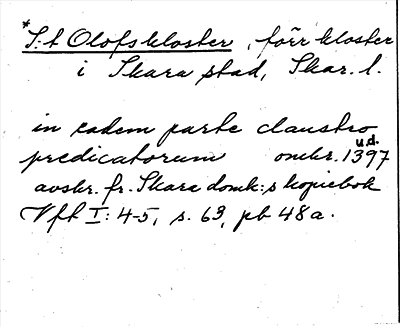 *S:t Olofs kloster, förr kloster
i Skara stad, Skar. l.
in eadem parte claustro
predicatorum omkr. 1397 u.d.
avskr. fr. Skara domk:s kopiebok
Vft I: 4-5, s. 63, pb 48a.